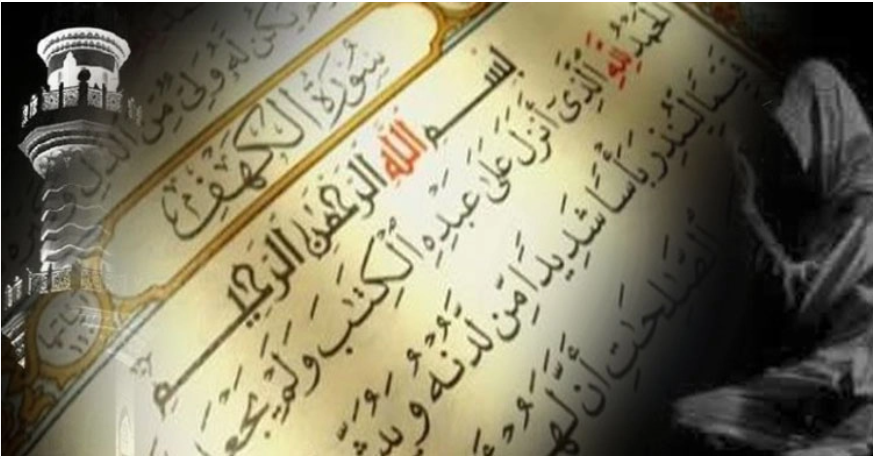 يَكُن لَّهُۥ وَلِىٌّ مِّنَ ٱلذُّلِّ
سُورَةُ الكَهْفِ
آياتها ١١٠
بِسْمِ ٱللَّهِ ٱلرَّحْمَٰنِ ٱلرَّحِيمِ
ٱلْحَمْدُ لِلَّهِ ٱلَّذِىٓ أَنزَلَ عَلَىٰ عَبْدِهِ ٱلْكِتَٰبَ وَلَمْ يَجْعَل
قَيِّمًا لِّيُنذِرَ بَأْسًا شَدِيدًا مِّن لَّدُنْهُ وَيُبَشِّ
ٱلصَّٰلِحَٰتِ أَنَّ لَهُمْ